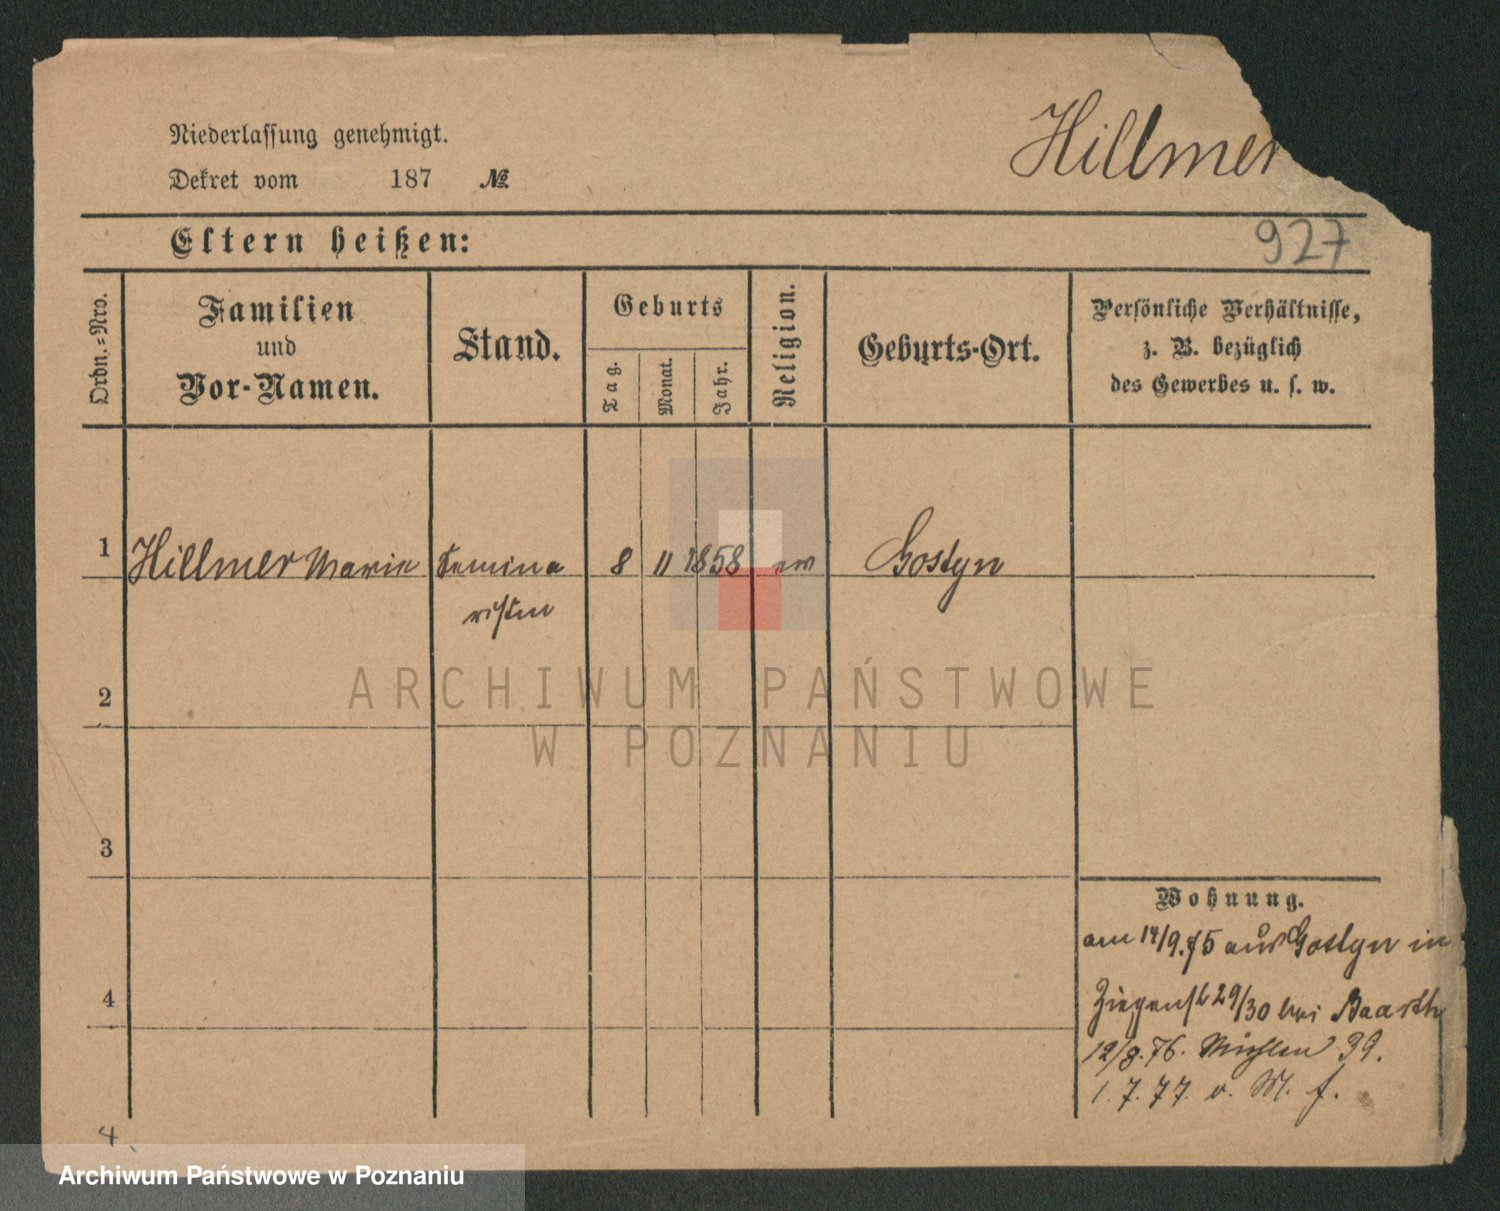 Niederlassung genehmigt.
Hillmer
Dekret vom 187 №
Eltern heißen:
927
Ordn.=Nro.
Familien
und
Vor-Namen.
Stand.
Geburts
Tag.
Monat.
Jahr.
Religion.
Geburts-Ort.
Persönliche Verhältnisse,
z. B. bezüglich
des Gewerbes u. s. w.
1 Hillmer Marie Semina 8 11 1858 ev Gostyn
ristin
2
3
4
Wohnung.
am 14/9.75 aus Gostyn in
Ziegenst 29/30 bei Baarth
12/8.76. Mühlen 39.
1.7.77. v. M. f.
4
ARCHIWUM PAŃSTWOWE
W POZNANIU
Archiwum Państwowe w Poznaniu